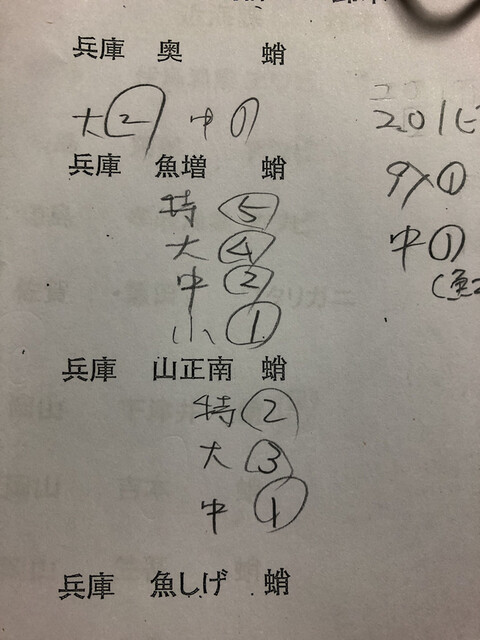 兵庫 奥 蛸
大② 中①
兵庫 魚増 蛸
特⑤
大④
中②
小①
兵庫 山正南 蛸
特②
大③
中①
兵庫 魚しげ 蛸
中①